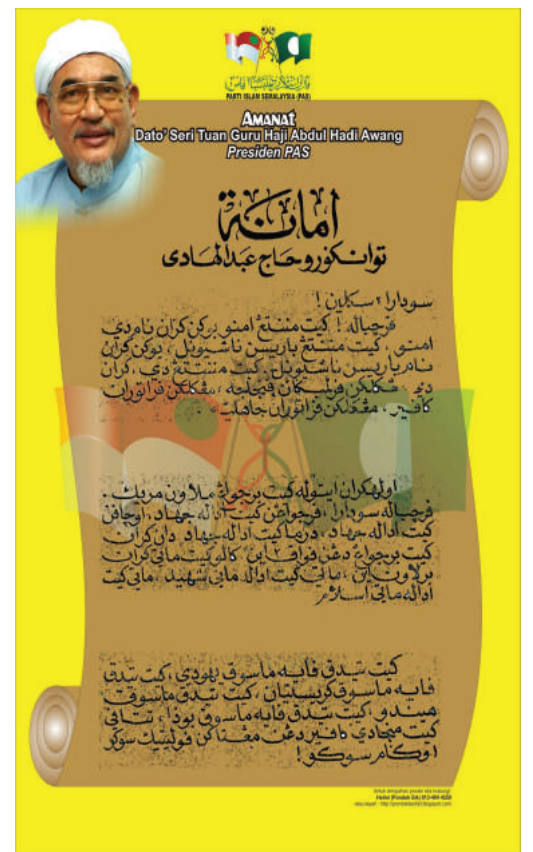 PARTI ISLAM SEMALAYSIA (PAS)
AMANAT
Dato' Seri Tuan Guru Haji Abdul Hadi Awang
Presiden PAS
امانة
توان ݢورو حاج عبدالهادي
سودارا٢ سکلين!
فرچياله! کيت مننتڠ امنو بوکن کران نام دي
امنو. کيت مننتڠ باريسن ناشيونل، بوکن کران
نام باريسن ناشيونل. کيت مننتڠ دي، کران
دي مڠکلکن فرلمبݢان فنجاجه، مڠکلکن فراتوران
کافير، مڠکلکن فراتوران جاهلية.
اوليه کران ايتوله کيت برجواڠ ملاون مريک.
فرچياله سودارا، فرجواڠن کيت اداله جهاد، اوچافن
کيت اداله جهاد، درما کيت اداله جهاد دان کران
کيت برجواڠ دڠن قواق٢ اين، کالو کيت ماتي کران
برلاون اين، ماتي کيت اداله ماتي شهيد، ماتي کيت
اداله ماتي اسلام
کيت تيدق فايه ماسوق يهودي، کيت تيدق
فايه ماسوق کريستيان، کيت تيدق ماسوق
هيندو، کيت تيدق فايه ماسوق بودا، تتافي
کيت منجادي کافير دڠن مڠݢوناکن فوليتيک سوکو
اوݢام سوکو!